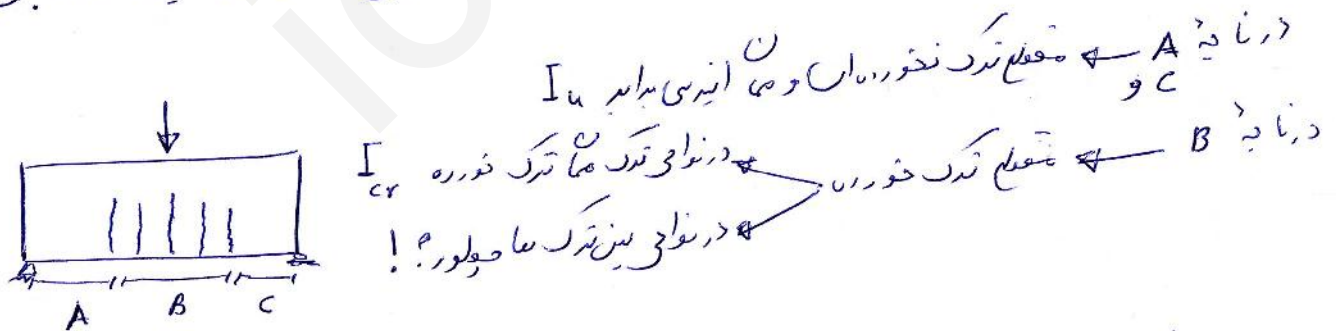 در ناحیه A و C ← مقطع ترک نخورده است و ممان اینرسی برابر Iu
در ناحیه B ← مقطع ترک خورده
در نواحی ترک ممان ترک خورده Icr
در نواحی بین ترک ها چطور؟!
A B C